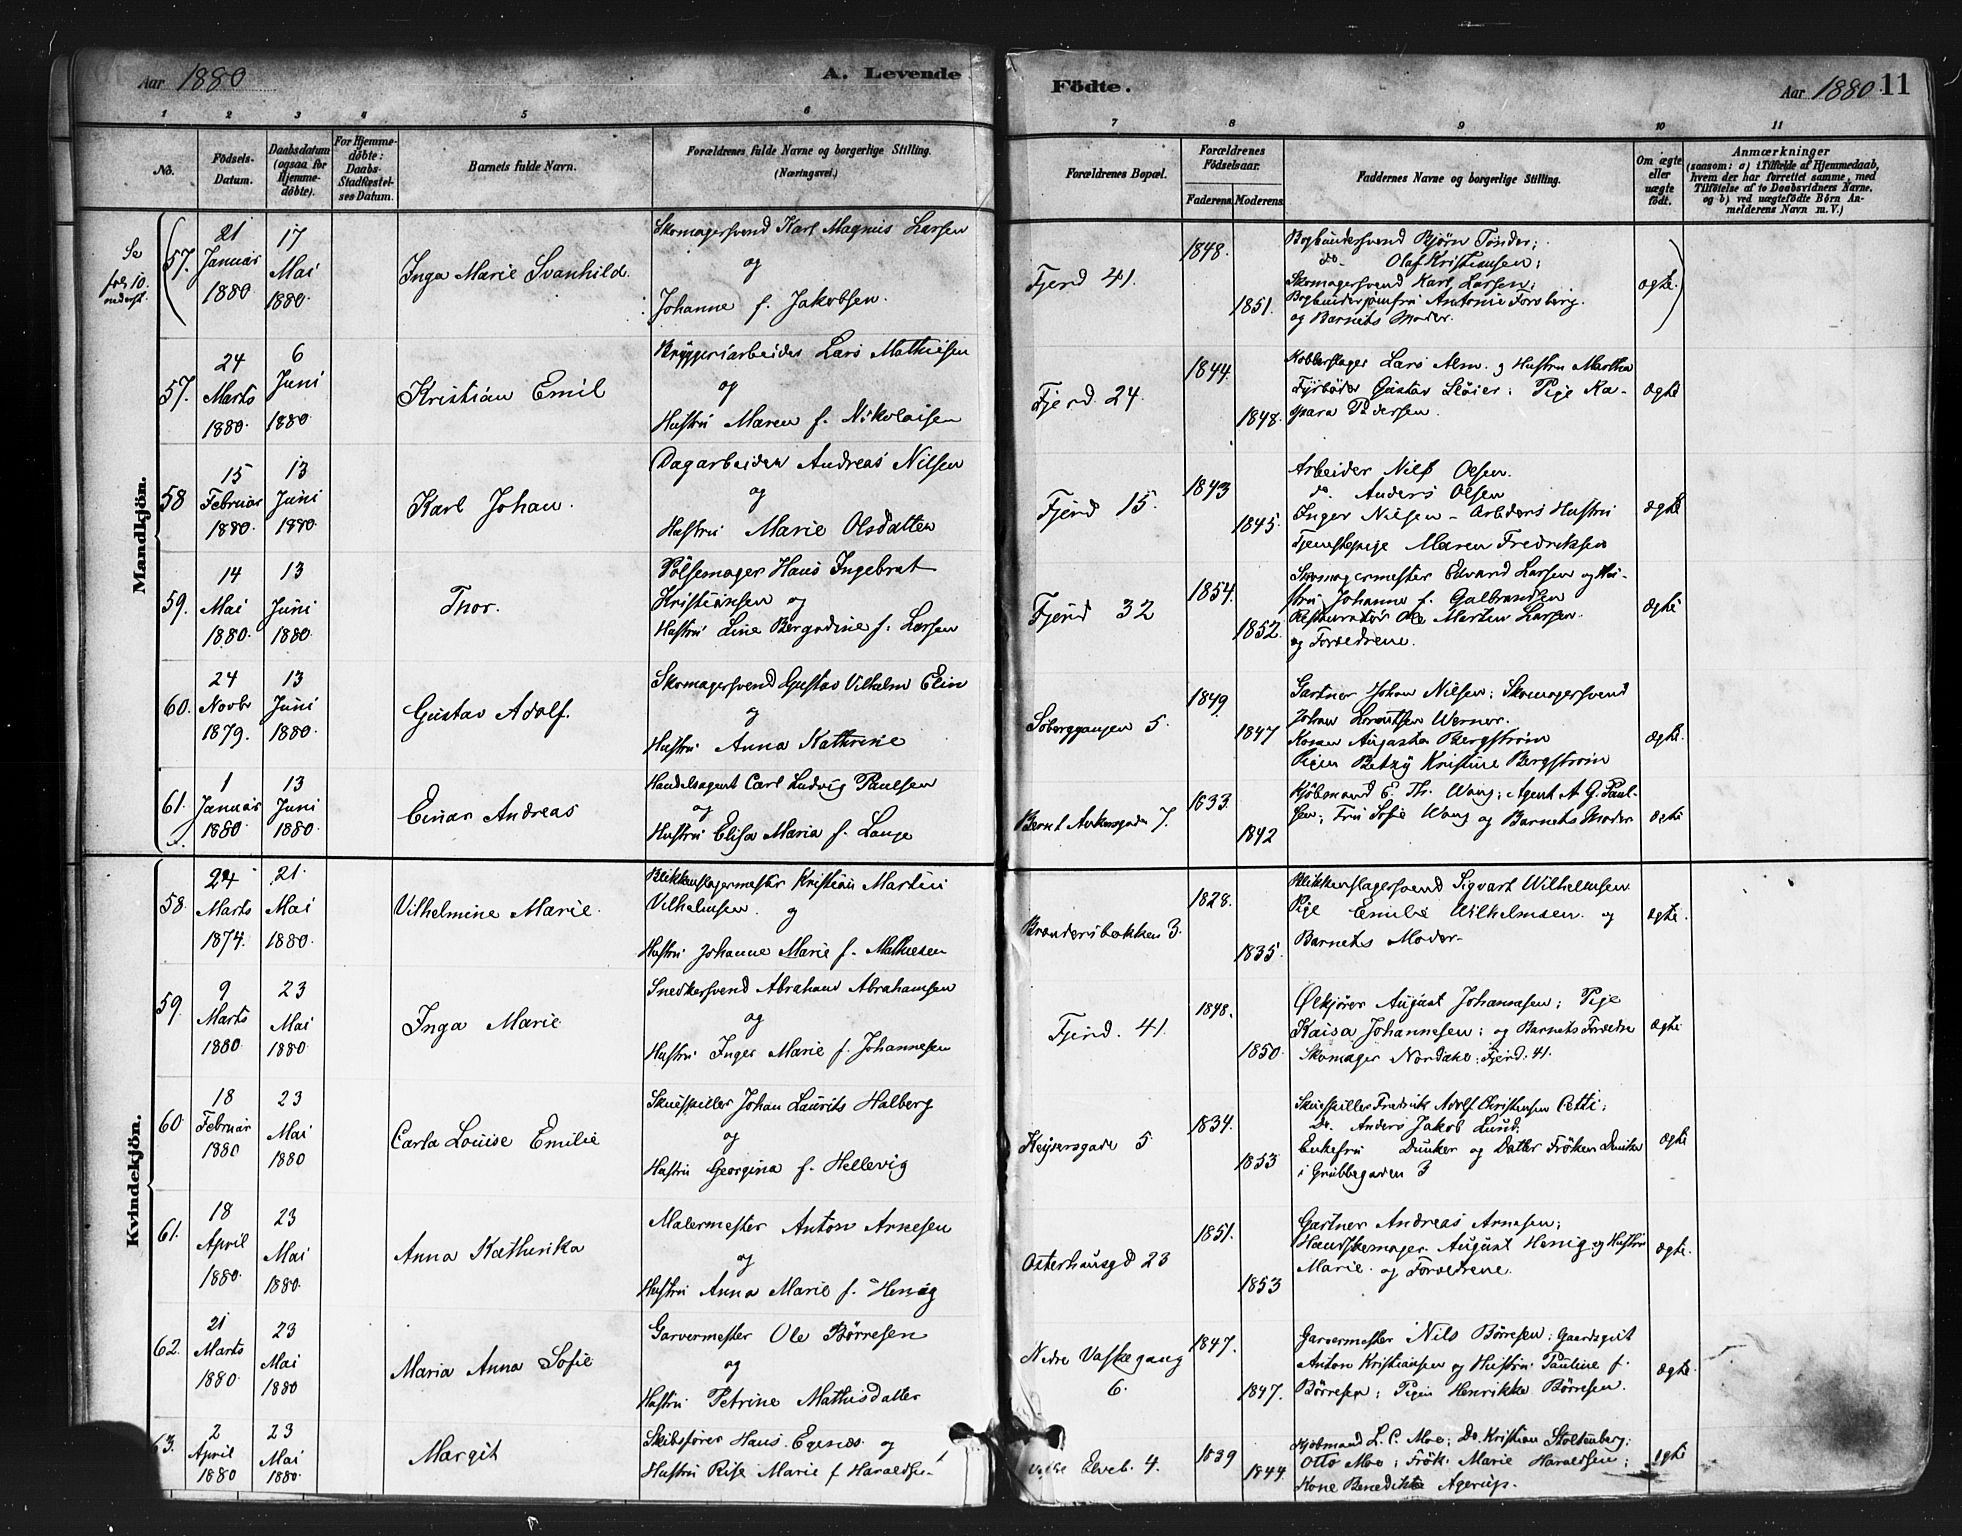 Aar 1880
A. Levende
Födte.
Aar 1880. 11
1 2 3 4 5 6
7 8 9 10 11
No.
Födsels-
Datum.
Daabsdatum
(ogsaa for
Hjemme-
döbte).
For Hjemme-
döbte:
Daabs-
Stadfæstel-
ses Datum.
Barnets fulde Navn.
Forældrenes fulde Navne og borgerlige Stilling.
(Næringsvei.)
Forældrenes Bopæl.
Forældrenes
Födselsaar.
Faderens. Moderens.
Faddernes Navne og borgerlige Stilling.
Om ægte
eller
uægte
født.
Anmærkninger
(saasom: a) i Tilfælde af Hjemmedaab,
hvem der har forrettet samme, med
Tilföielse af to Daabsvidners Navne.
og b) ved uægtefödte Börn An-
melderens Navn m.V.)
Mandkjön.
Se
fol. 10.
nederst.
57.
21
Januar
1880
17
Mai
1880.
Inga Marie Svanhild.
Skomagersvend Karl Magnus Larsen
og
Johanne f. Jakobsen.
Fjerd 41.
1848.
1851.
Bogbindersvend Bjørn Tønder;
do. Olaf Kristiansen;
Skomagersvend Karl Larsen;
Bogbinderjomfru Antonie Forsberg
og Barnets Moder.
ægte.
57.
24
Marts
1880.
6
Juni
1880
Kristian Emil
Bryggeriarbeider Lars Mathisen
og
Hustru Maren f. Nikolaisen
Fjerd. 24.
1844.
1848.
Kobberslager Lars Alm. og Hustru Martha
Fyrbøder Gustav Sløier; Pige Ka-
spara Pedersen.
ægte
58
15
Februar
1880.
13
Juni
1880
Karl Johan.
Dagarbeider Andreas Nilsen
og
Hustru Marie Olsdatter
Fjerd 15.
1843
1845.
Arbeider Nils Olsen.
do. Anders Olsen
Inger Nilsen - Arbeiders Hustru
Tjenestepige Maren Fredriksen
ægte
59.
14
Mai
1880.
13
Juni
1880
Thor.
Pølsemager Hans Ingebret
Kristiansen og
Hustru Line Bergodine f. Larsen
Fjerd 32
1854.
1852.
Skomagermester Edvard Larsen og Hu-
stru Johanne f. Galbrandsen
Restauratør Ole Martin Larsen.
og Forældrene.
ægte
60.
24
Novbr
1879.
13
Juni
1880.
Gustav Adolf.
Skomagersvend Gustav Vilhelm Elin
og
Hustru Anna Kathrine
Søberggangen 5.
1849.
1847
Gartner Johan Nilsen; Skomagersvend
Johan Lorentsen Werner.
Konen Augusta Bergstrøm
Pigen Betzy Kristine Bergstrøm
ægte.
61.
1
Januar
1880
13
Juni
1880.
Einar Andreas
Handelsagent Carl Ludvig Paulsen
og
Hustru Elisa Maria f. Lange
Bernt Ankersgade 7.
1833.
1842
Kjøbmand E. Th. Wang; Agent A. G. Paul-
sen; Fru Sofie Wang og Barnets Moder
ægte
Kvindekjön.
58.
24
Marts
1874.
21.
Mai
1880.
Vilhelmine Marie.
Blikkenslagermester Kristian Martin
Vilhelmsen. og
Hustru Johanne Marie f. Mathiesen
Brendersbakken 3.
1828.
1835.
Blikkenslagersvend Sigvart Wilhelmsen
Pige Emilie Wilhelmsen. og
Barnets Moder-
ægte.
59.
9
Marts
1880
23
Mai
1880
Inga Marie
Snedkersvend Abraham Abrahamsen
og
Hustru Inger Marie f. Johannesen
Fjerd. 41.
1848.
1850.
Ølkjører August Johannesen; Pige
Kaisa Johannesen; og Barnets Forældre
Skomager Nordake: Fjerd. 41.
ægte
60.
18
Februar
1880
23
Mai
1880
Carla Louise Emilie
Skuespiller Johan Laurits Halberg
og
Hustru Georgina f. Hellevig
Keysersgade 5
1834.
1853
Skuespiller Fredrik Adolf Christensen Cetti;
Do. Anders Jakob Lund.
Enkefru Dunker og Datter Frøken Dunker
i Grubbegaden 3
ægte
61.
18
April
1880.
23
Mai
1880.
Anna Kathinka
Malermester Anton Arnesen
og
Hustru Anna Marie f. Henig
Osterhausgd 23
1851.
1853
Gartner Andreas Arnesen;
Handskemager August Henig og Hustru
Marie. og Forældrene.
ægte.
62.
21
Marts
1880.
23
Mai
1880
Maria Anna Sofie
Garvermester Ole Børresen
og
Hustru Petrine Mathisdatter
Nedre Vaskegang
6.
1847.
1847.
Garvermester Nils Børresen; Gaardsgut
Anton Kristiansen og Hustru Pauline f.
Børresen; Pigen Henrikke Børresen.
ægte.
63.
2
April
1880
23
Mai
1880.
Margit
Skibsfører Hans Egenæs og
Hustru Rise Marie f Haraldsen
Elveb. 4.
1839
1844.
Kjøbmand L. C. Moe; Do. Kristian Stoltenberg;
Otto Moe; Frøk. Marie Haraldsen;
Kone Benedikte Agerup.
ægte